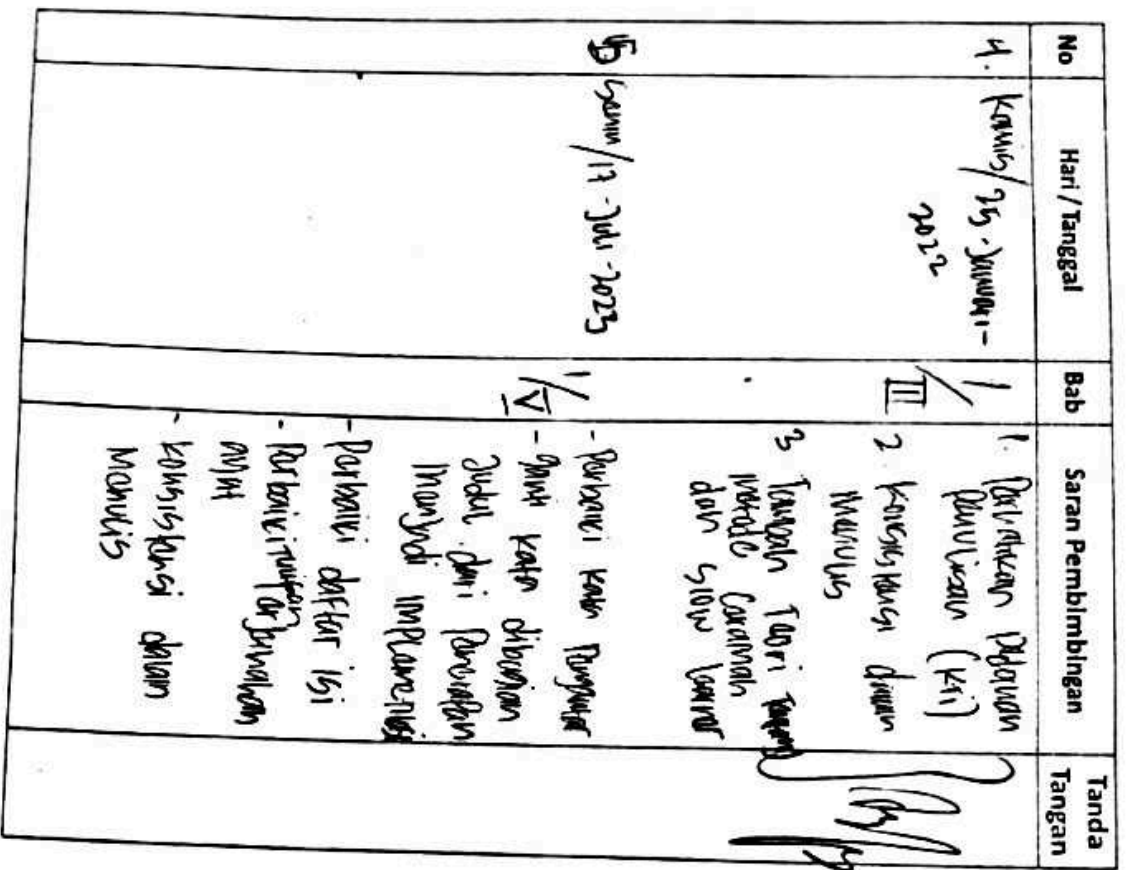 No
Hari / Tanggal
Bab
Saran Pembimbingan
Tanda
Tangan
4.
Kamis/25-Januari-
2022
I/
III
1. Perhatikan pedoman
penulisan (KTI)
2 Konsistensi dalam
menulis
3 Tambah Teori
metode Ceramah
dan slow
5
Senin/17-Juli-2023
I/V
- Perbaiki kata Pengantar
- ganti kata dibagian
Judul dari Penerapan
menjadi implementasi
- Perbaiki daftar isi
- Perbaiki tulisan Terjemahan
ayat
- konsistensi dalam
Menulis